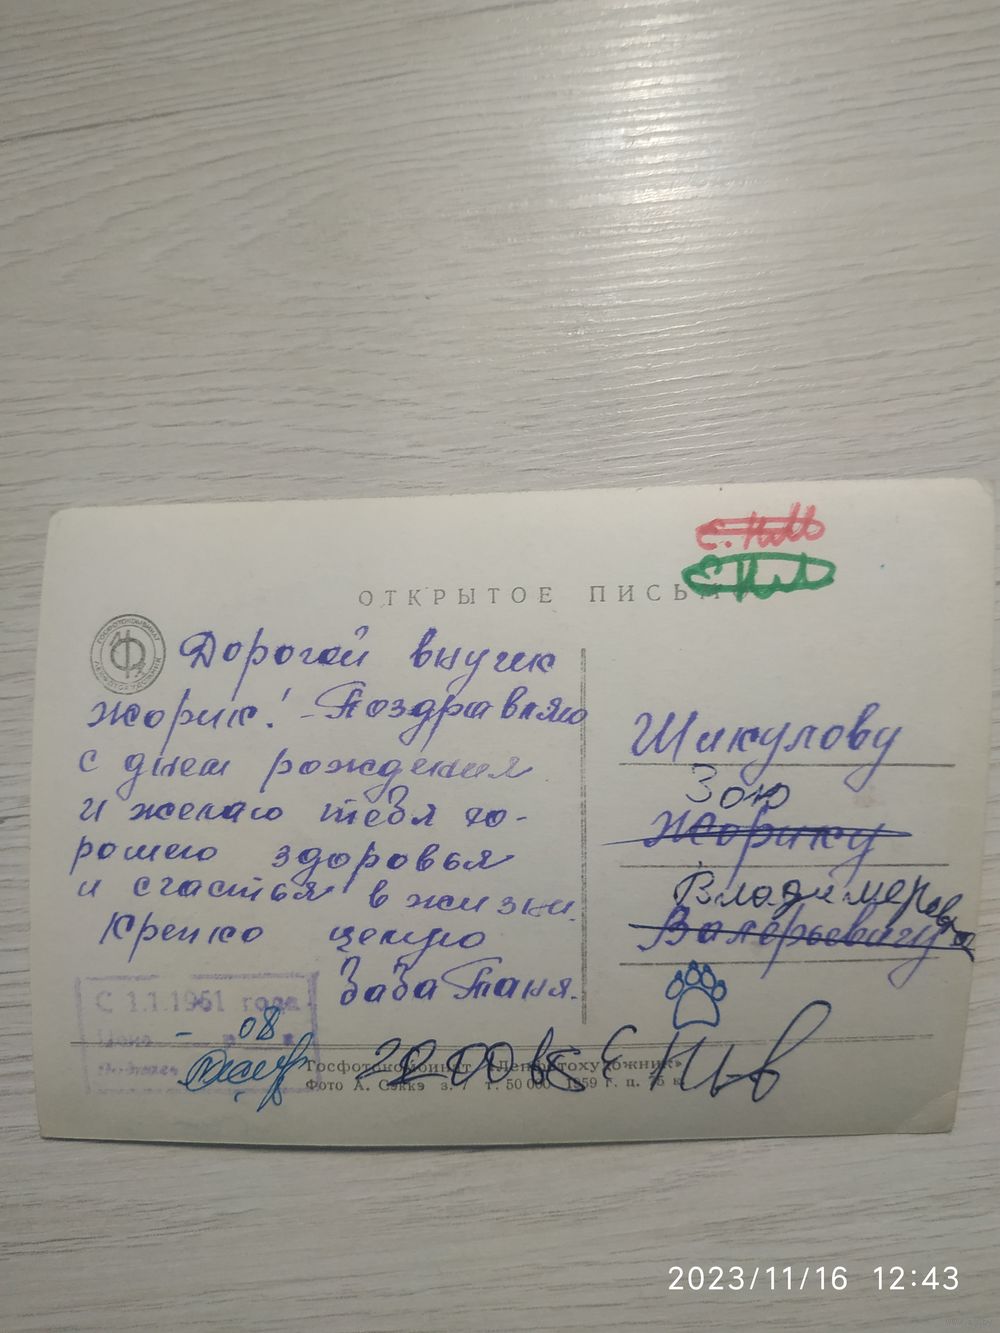 ОТКРЫТОЕ ПИСЬМ
ГОСФОТОКОМБИНАТ
ЛЕНФОТОХУДОЖНИК
Дорогой внучек
Жорик! Поздравляю
с днем рождения
и желаю тебя хо-
рошего здоровья
и счастья в жизни.
Крепко целую
баба Таня.
Шикулову
Зою
Жорику
Владимеровна
Валерьевичу
С 1.1.1961 года
Цена
08
Госфотокомбинат «Ленфотохудожник»
Фото А. Сэккэ з. т. 50 000 1959 г. ц. к.
2023/11/16 12:43